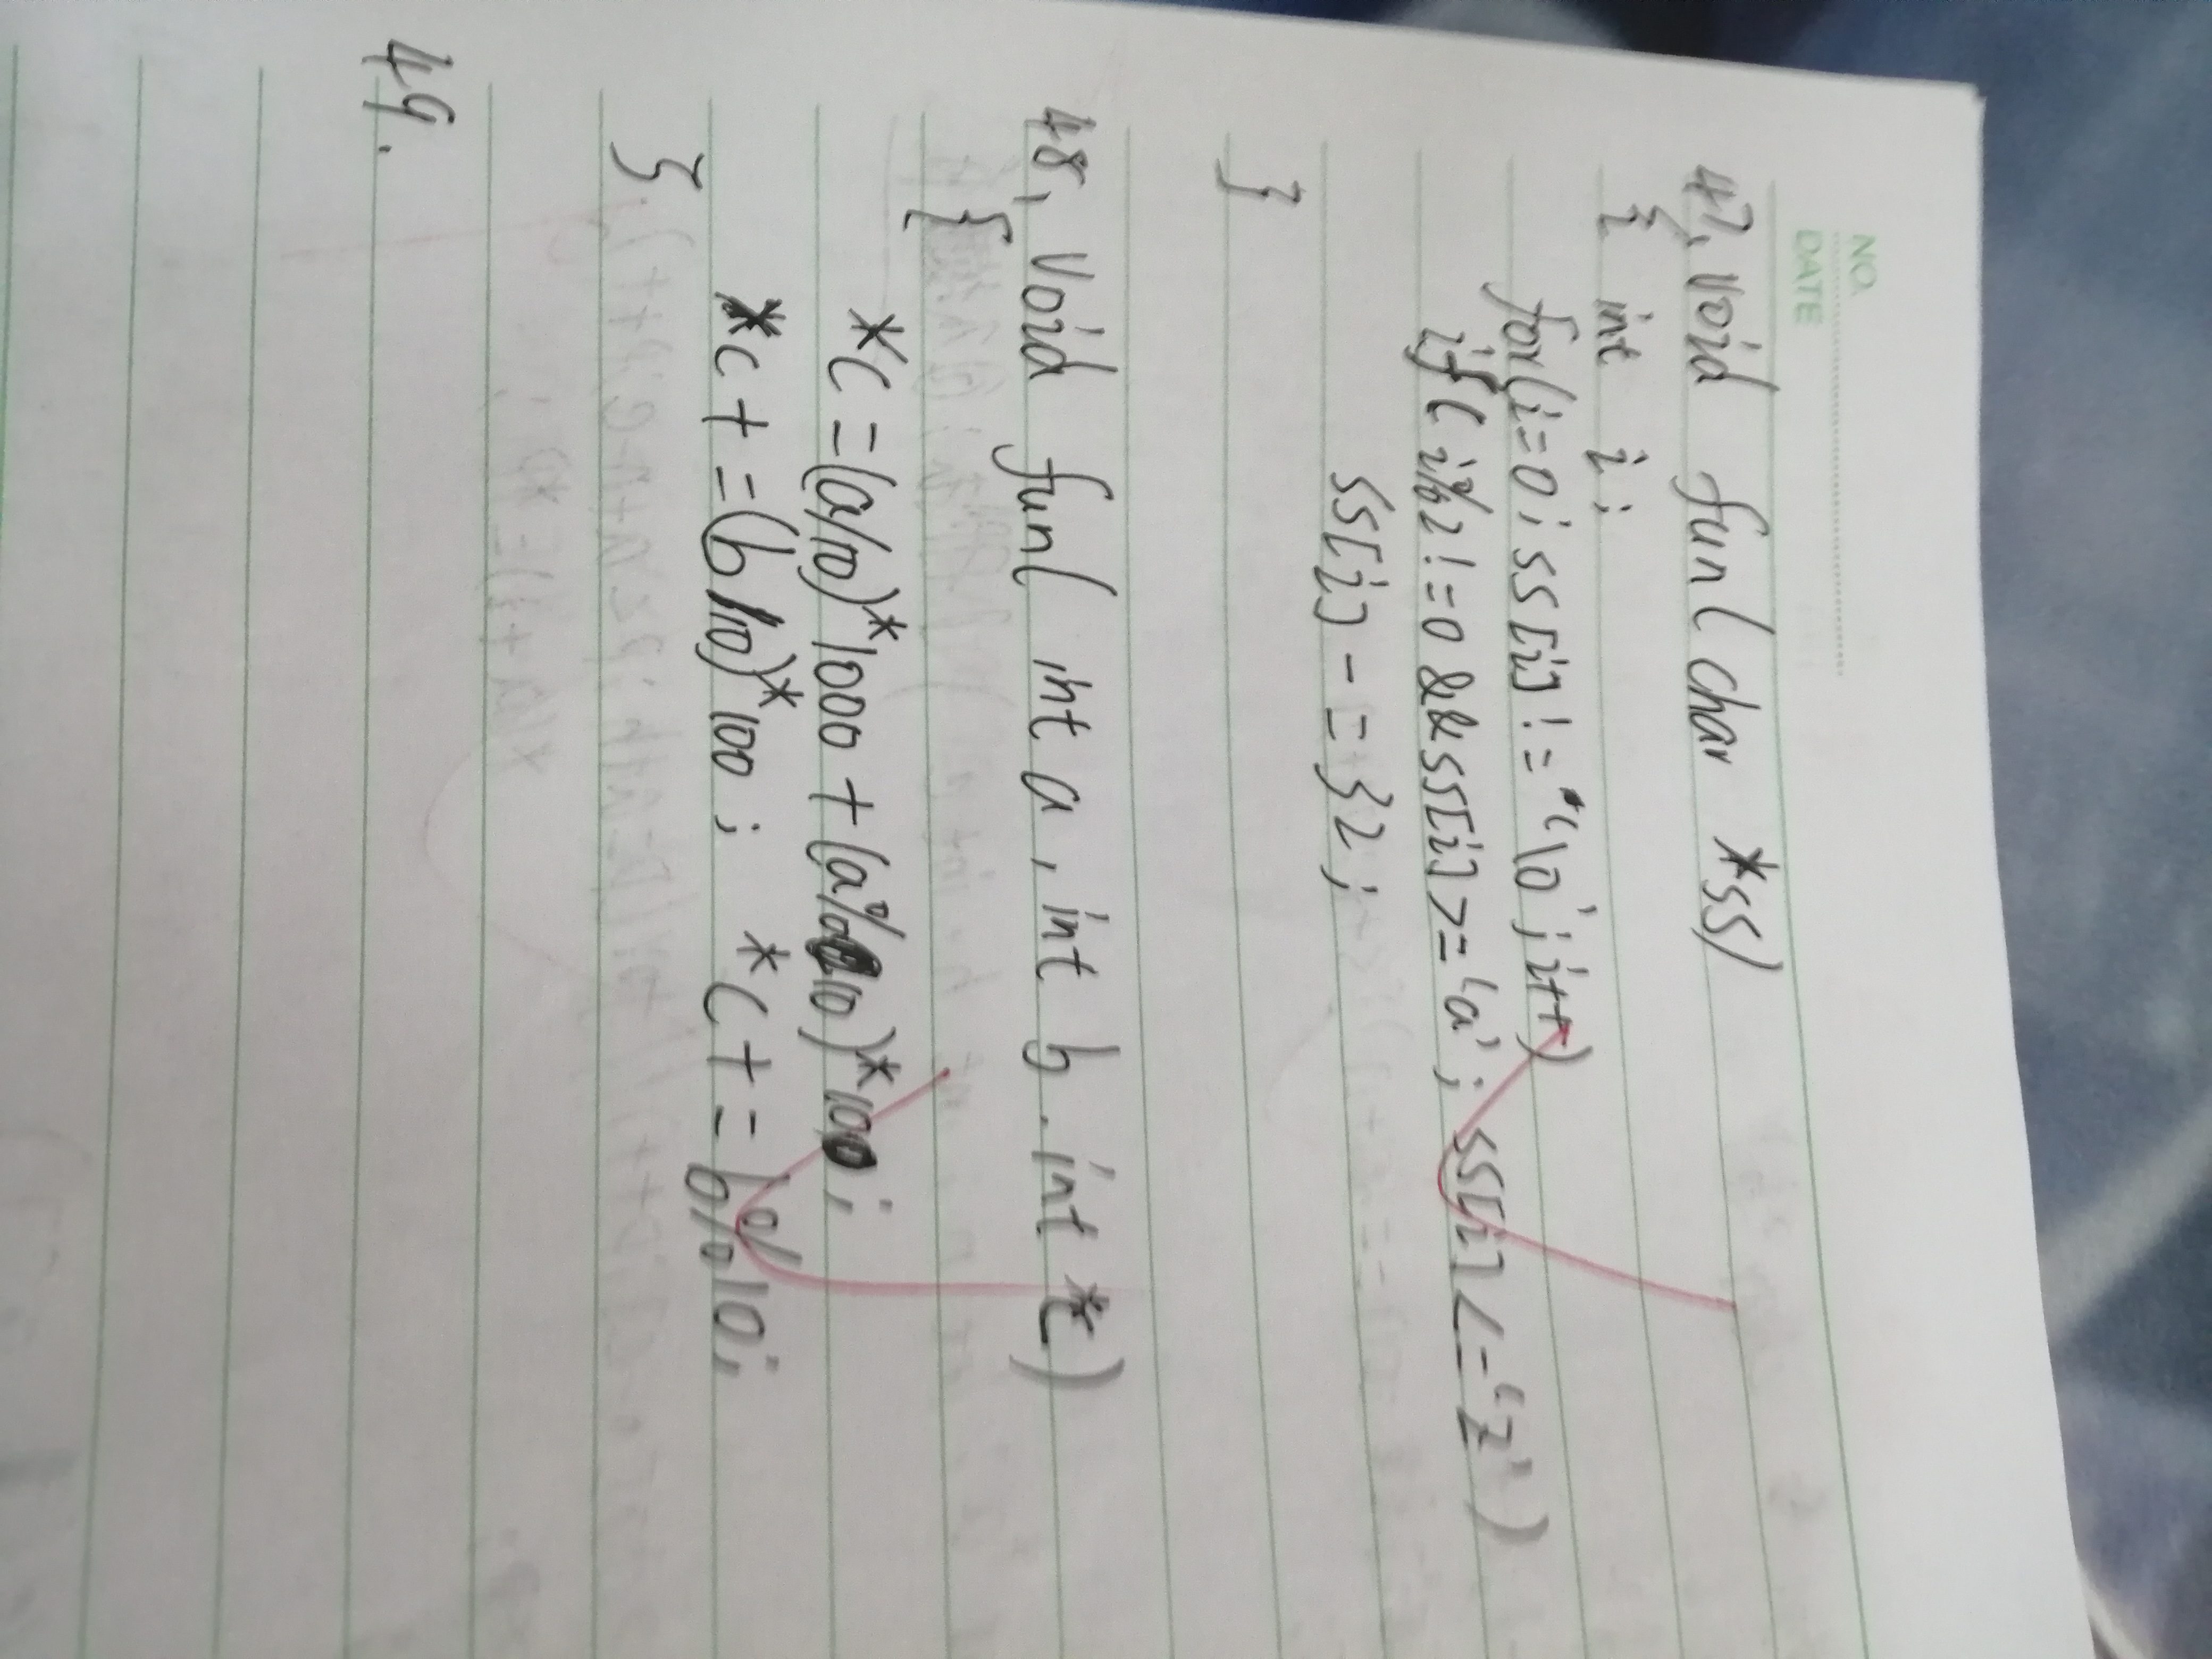 NO.
DATE
47、void fun(char *ss)
{ int i;
for(i=0; ss[i]!='\0'; i++)
if(i%2!=0&&ss[i]>='a'; ss[i]<='z')
ss[i]-=32;
}
48、void fun( int a, int b. int *c)
{
*c=(a/10)*1000+(a%10)*100;
*c+=(b/10)*100; *c+=b%10;
}
49.